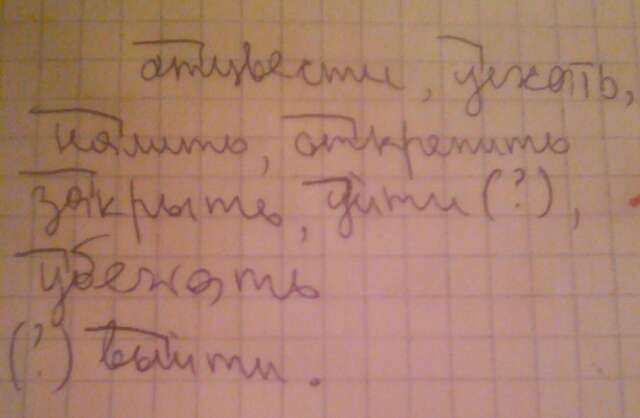 отцвести, ужать,
налить, открепить
закрыть, уйти (?),
убежать
(?) выйти.